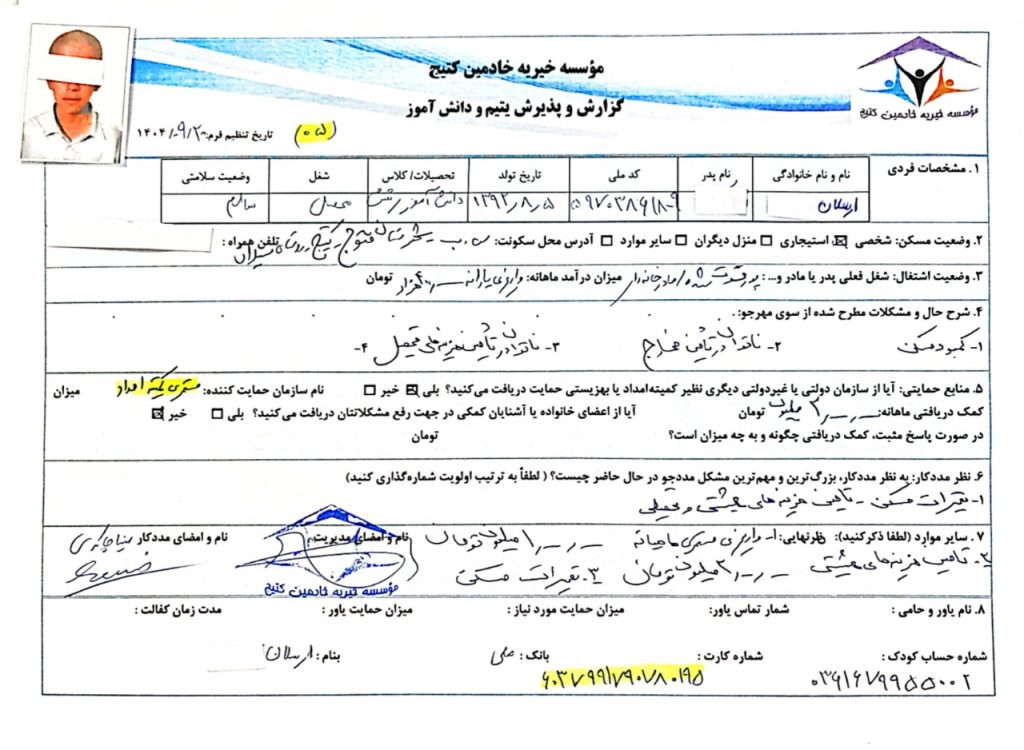 مؤسسه خیریه خادمین کتیج
گزارش و پذیرش یتیم و دانش آموز
مؤسسه خیریه خادمین کتیج
تاریخ تنظیم فرم: ۱۴۰۴/۹/۲۰
۱. مشخصات فردی
نام و نام خانوادگی نام پدر کد ملی تاریخ تولد تحصیلات/کلاس شغل وضعیت سلامتی
ارسلان ۱۳۹۲/۸/۵ دانش آموز محصل سالم
۲. وضعیت مسکن: شخصی ☒ استیجاری ☐ منزل دیگران ☐ سایر موارد ☐ آدرس محل سکونت: س.ب شهرستان فنوج کتیج تلفن همراه :
۳. وضعیت اشتغال: شغل فعلی پدر یا مادر و...: پدر فوت شده/مادر خانه‌دار میزان درآمد ماهانه: واریزی یارانه هزار تومان
۴. شرح حال و مشکلات مطرح شده از سوی مهرجو:
۱- کمبود مسکن ۲- ناتوان در تأمین مخارج ۳- ناتوان در تأمین هزینه های تحصیل ۴-
۵. منابع حمایتی: آیا از سازمان دولتی یا غیردولتی دیگری نظیر کمیته‌امداد یا بهزیستی حمایت دریافت می‌کنید؟ بلی ☒ خیر ☐ نام سازمان حمایت کننده: مستمری کمیته امداد میزان
کمک دریافتی ماهانه: میلیون تومان آیا از اعضای خانواده یا آشنایان کمکی در جهت رفع مشکلاتتان دریافت می‌کنید؟ بلی ☐ خیر ☒
در صورت پاسخ مثبت، کمک دریافتی چگونه و به چه میزان است؟ تومان
۶. نظر مددکار: به نظر مددکار، بزرگ‌ترین و مهم‌ترین مشکل مددجو در حال حاضر چیست؟ ( لطفاً به ترتیب اولویت شماره‌گذاری کنید)
۱- تعمیرات مسکن - تأمین هزینه های معیشتی و تحصیلی
۷. سایر موارد (لطفا ذکرکنید): نظرنهایی: ۱- واریزی مستمری ماهیانه میلیون تومان نام و امضای مدیریت: نام و امضای مددکار
۲- تأمین هزینه های معیشتی میلیون تومان ۳- تعمیرات مسکن
مؤسسه خیریه خادمین کتیج
۸. نام یاور و حامی : شمار تماس یاور: میزان حمایت مورد نیاز : میزان حمایت یاور : مدت زمان کفالت :
شماره حساب کودک : شماره کارت : بانک : ملی بنام : ارسلان
۰۳۶۱۶۷۹۹۵۵۰۰۲ ۶۰۳۷۹۹۱۷۹۰۷۸۰۱۹۵